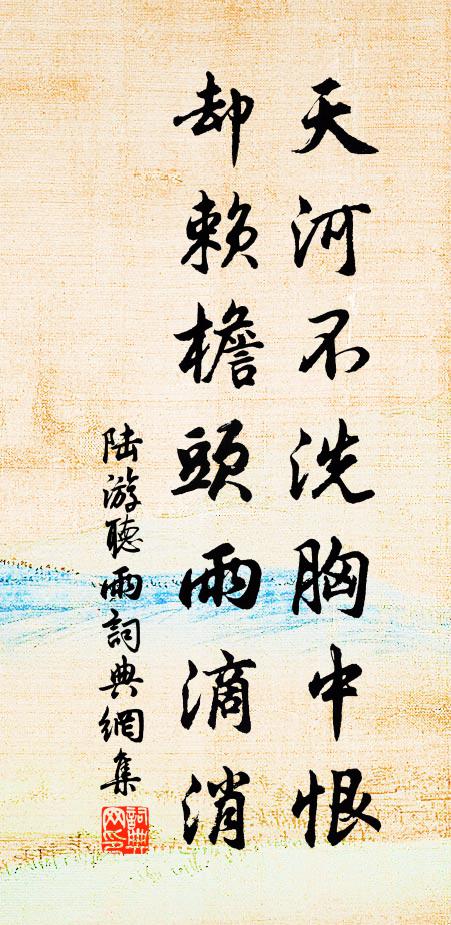 天河不洗胸中恨
却赖檐頭雨滴消
陆游聽雨詞典網集
詞典網印